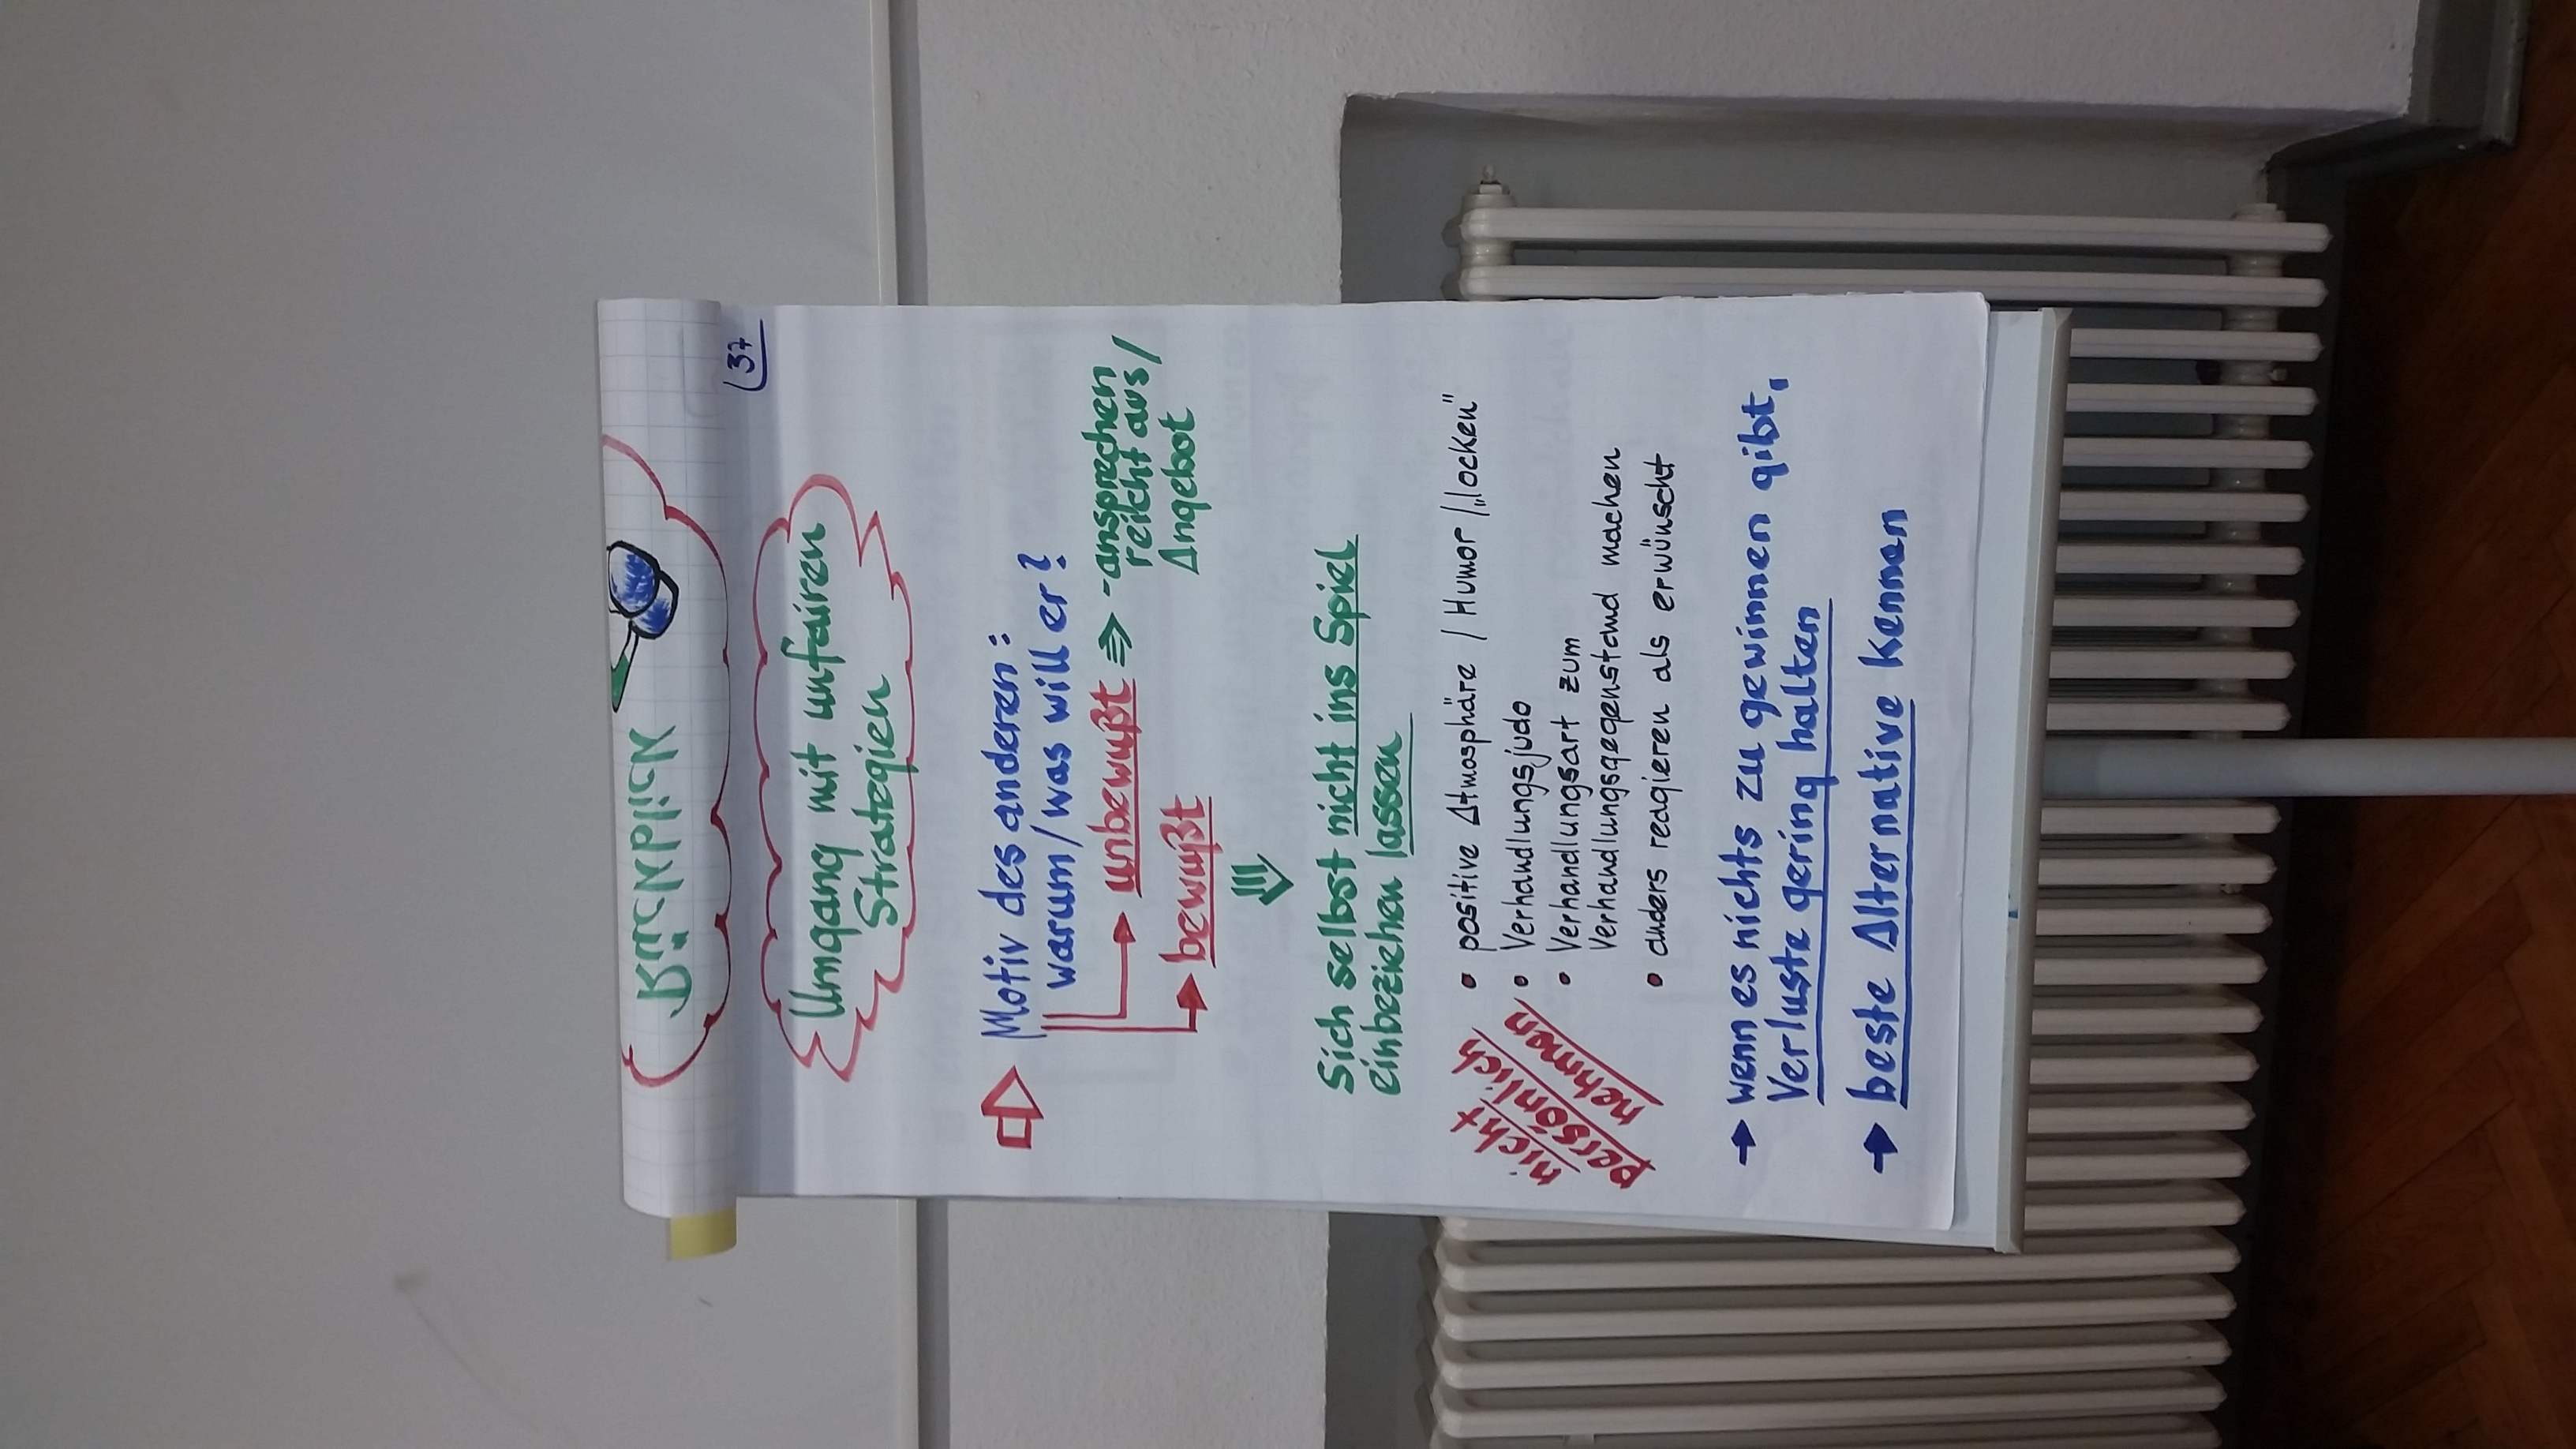 Rückblick
37
Umgang mit unfairen
Strategien
Motiv des anderen:
warum/was will er?
unbewußt ⇒ -ansprechen
reicht aus/
Angebot
bewußt
Sich selbst nicht ins Spiel
einbeziehen lassen
nicht
persönlich
nehmen
• positive Atmosphäre / Humor / „locken"
• Verhandlungsjudo
• Verhandlungsart zum
Verhandlungsgegenstand machen
• anders reagieren als erwünscht
→ wenn es nichts zu gewinnen gibt,
Verluste gering halten
→ beste Alternative kennen